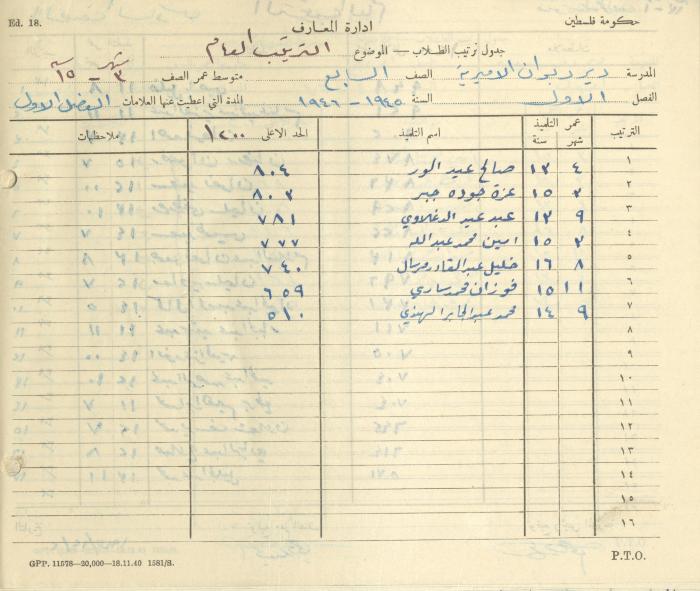 Ed. 18.
حكومة فلسطين
ادارة المعارف
جدول ترتيب الطلاب — الموضوع الترتيب العام
المدرسة دير ديوان الاميرية الصف السابع متوسط عمر الصف ٣ شهر – ١٥ س
الفصل الاول السنة ١٩٤٥ – ١٩٤٦ المدة التي اعطيت عنها العلامات الفصل الاول
الترتيب عمر التلميذ شهر سنة اسم التلميذ الحد الاعلى ١٢٠٠ ملاحظات
١ ٤ ١٣ صالح عبد النور ٨٠٤
٢ ٣ ١٥ عزة جوده جبر ٨٠٣
٣ ٩ ١٣ عبد عيد الدغلاوي ٧٨١
٤ ٣ ١٥ امين محمد عبدالله ٧٧٧
٥ ٨ ١٦ خليل عبدالقادر مرسال ٧٤٠
٦ ١١ ١٥ فوزان محمد ساري ٦٥٩
٧ ٩ ١٤ محمد عبدالجابر الهندي ٥١٠
٨
٩
١٠
١١
١٢
١٣
١٤
١٥
١٦
P.T.O.
GPP. 11578—20,000—18.11.40 1581/S.